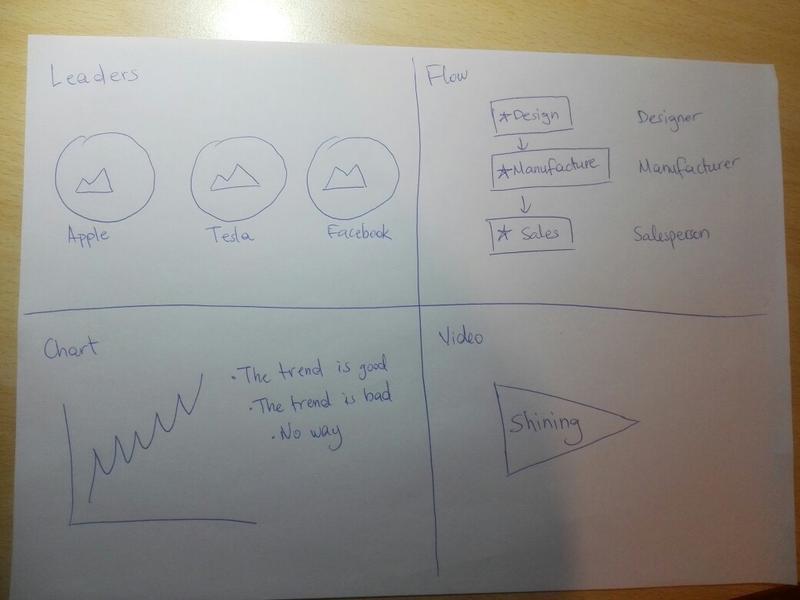 Leaders
Apple
Tesla
Facebook
Flow
*Design
Designer
*Manufacture
Manufacturer
* Sales
Salesperson
Chart
• The trend is good
• The trend is bad
• No way
Video
Shining